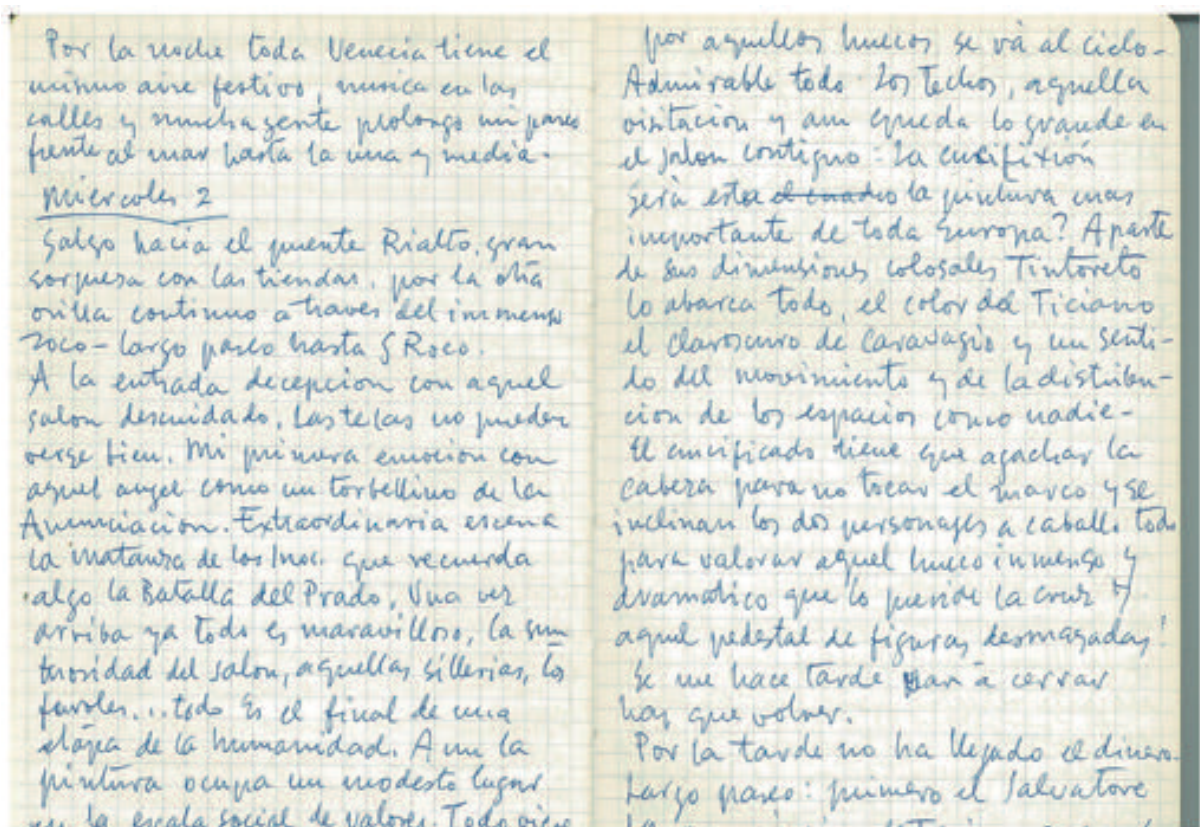 Por la noche toda Venecia tiene el
mismo aire festivo, musica en las
calles y mucha gente prolongo mi paseo
frente al mar hasta la una y media.
Miercoles 2
Salgo hacia el puente Rialto, gran
sorpresa con las tiendas, por la otra
orilla continuo a traves del inmenso
zoco - largo paseo hasta S Roco.
A la entrada decepcion con aquel
salon descuidado, las telas no pueden
verse bien. Mi primera emocion con
aquel angel como un torbellino de la
Anunciacion. Extraordinaria escena
la matanza de los Inoc. que recuerda
algo la Batalla del Prado, Una vez
arriba ya todo es maravilloso, la sun
tuosidad del salon, aquellas sillerias, los
faroles... todo Es el final de una
etapa de la humanidad. Aun la
pintura ocupa un modesto lugar
en la escala social de valores. Todo
por aquellos huecos se vá al cielo -
Admirable todo los techos, aquella
visitacion y aun queda lo grande en
el salon contiguo: la crucifixión
Será esta el cuadro la pintura mas
importante de toda Europa? Aparte
de sus dimensiones colosales Tintoreto
lo abarca todo, el color del Ticiano
el claroscuro de Caravagio y un senti-
do del movimiento y de la distribu-
cion de los espacios como nadie -
El crucificado tiene que agachar la
cabeza para no tocar el marco y se
inclinan los dos personages a caballo todo
para valorar aquel hueco inmenso y
dramatico que lo preside la cruz y
aquel pedestal de figuras desmayadas!
Se me hace tarde van a cerrar
hay que volver.
Por la tarde no ha llegado el dinero.
Largo paseo: primero el Salvatore